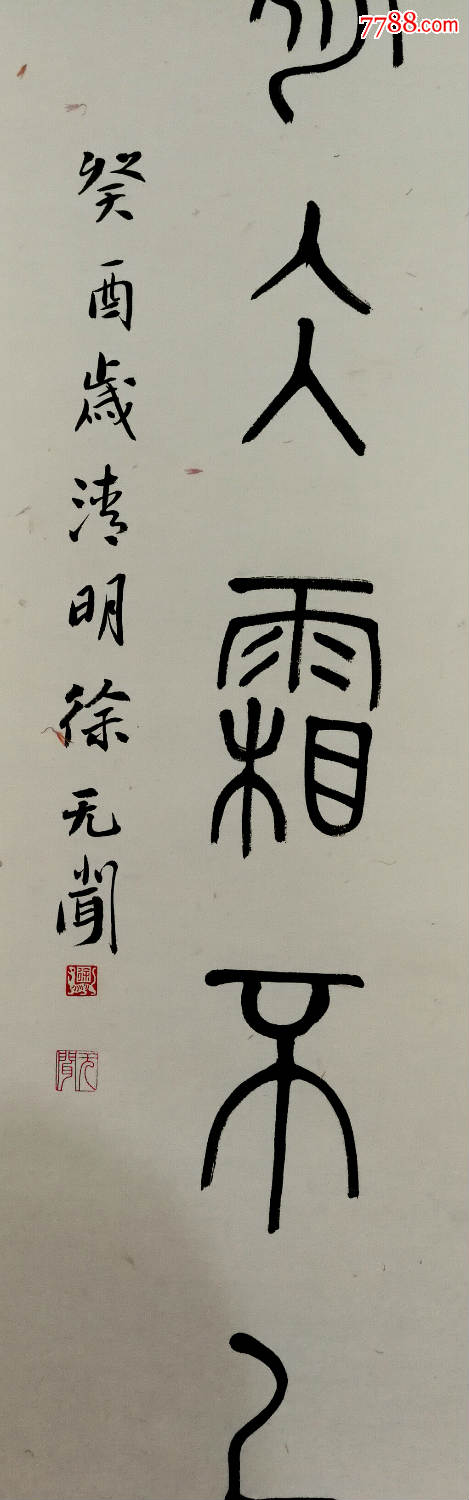 7788.com
仌霜不
癸酉歲清明徐无聞
无聞